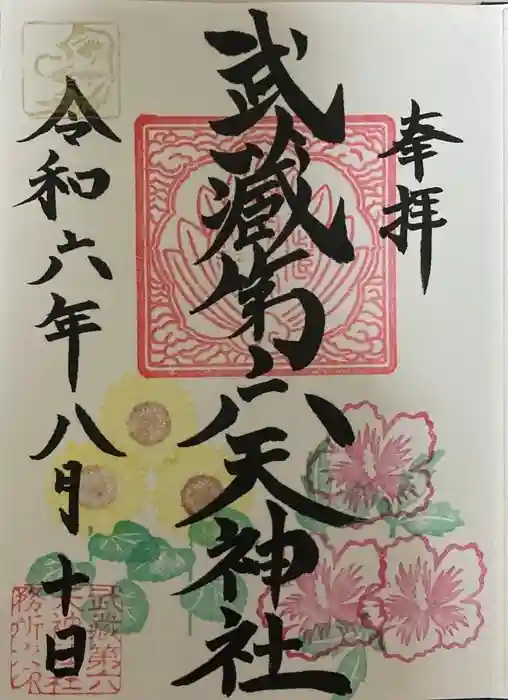 奉拝
武蔵第六天神社
令和六年八月十日
武蔵第六
天神社